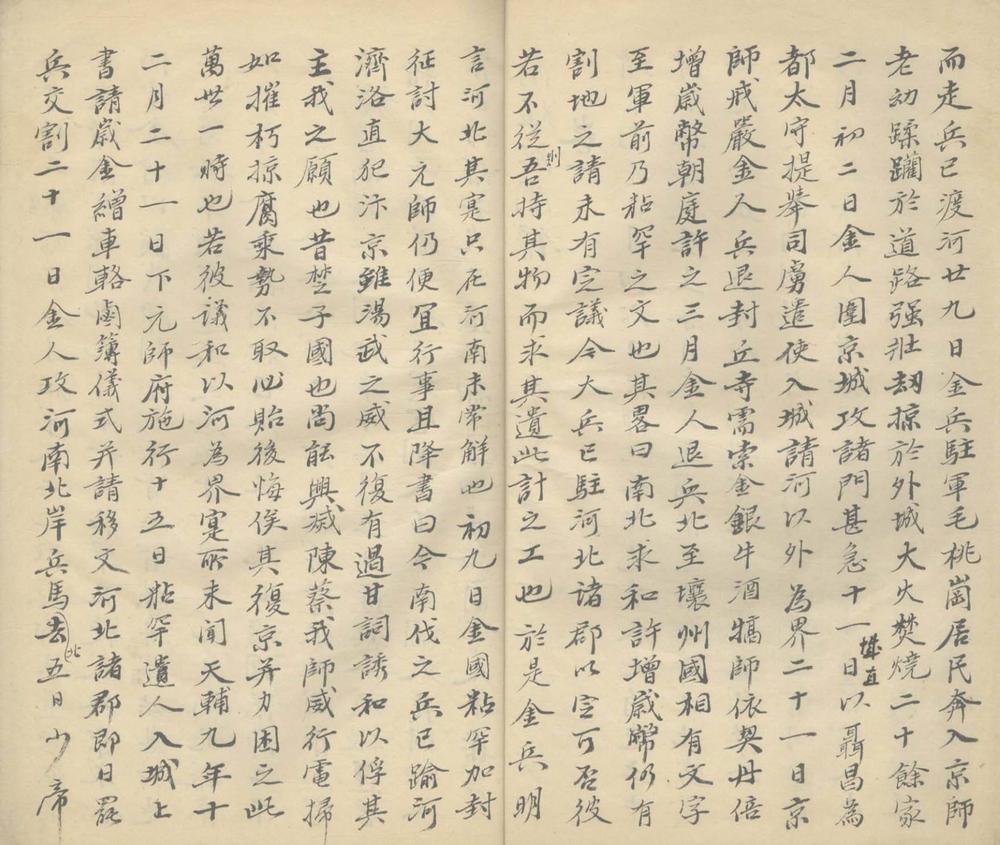 而走兵已渡河廿九日金兵駐軍毛桃崗居民奔入京師
老幼蹂躪於道路强壯刼掠於外城大火焚燒二十餘家
二月初二日金人圍京城攻諸門甚急十一日以聶昌為
都太守提舉司虜遣使入城請河以外為界二十一日京
師戒嚴金人兵退封丘寺需索金銀牛酒犒師依契丹倍
增歲幣朝庭許之三月金人退兵北至壤州國相有文字
至軍前乃粘罕之文也其畧曰南北求和許增歲幣仍有
割地之請未有定議今大兵已駐河北諸郡以定可否彼
若不從則吾持其物而求其遺此計之工也於是金兵明
言河北其寔只在河南未常解也初九日金國粘罕加封
征討大元師仍便冝行事且降書曰今南伐之兵已踰河
濟洛直犯汴京雖湯武之威不復有過甘詞誘和以俘其
主我之願也昔楚子國也尚能興滅陳蔡我師咸行電掃
如摧朽掠腐乘勢不取必貽後悔俟其復京并力困之此
萬世一時也若彼議和以河為界寔所未聞天輔九年十
二月二十一日下元師府施行十五日粘罕遺人入城上
書請歲金繒車輅鹵簿儀式并請移文河北諸郡即日罷
兵交割二十一日金人攻河南北岸兵馬去北五日少帝